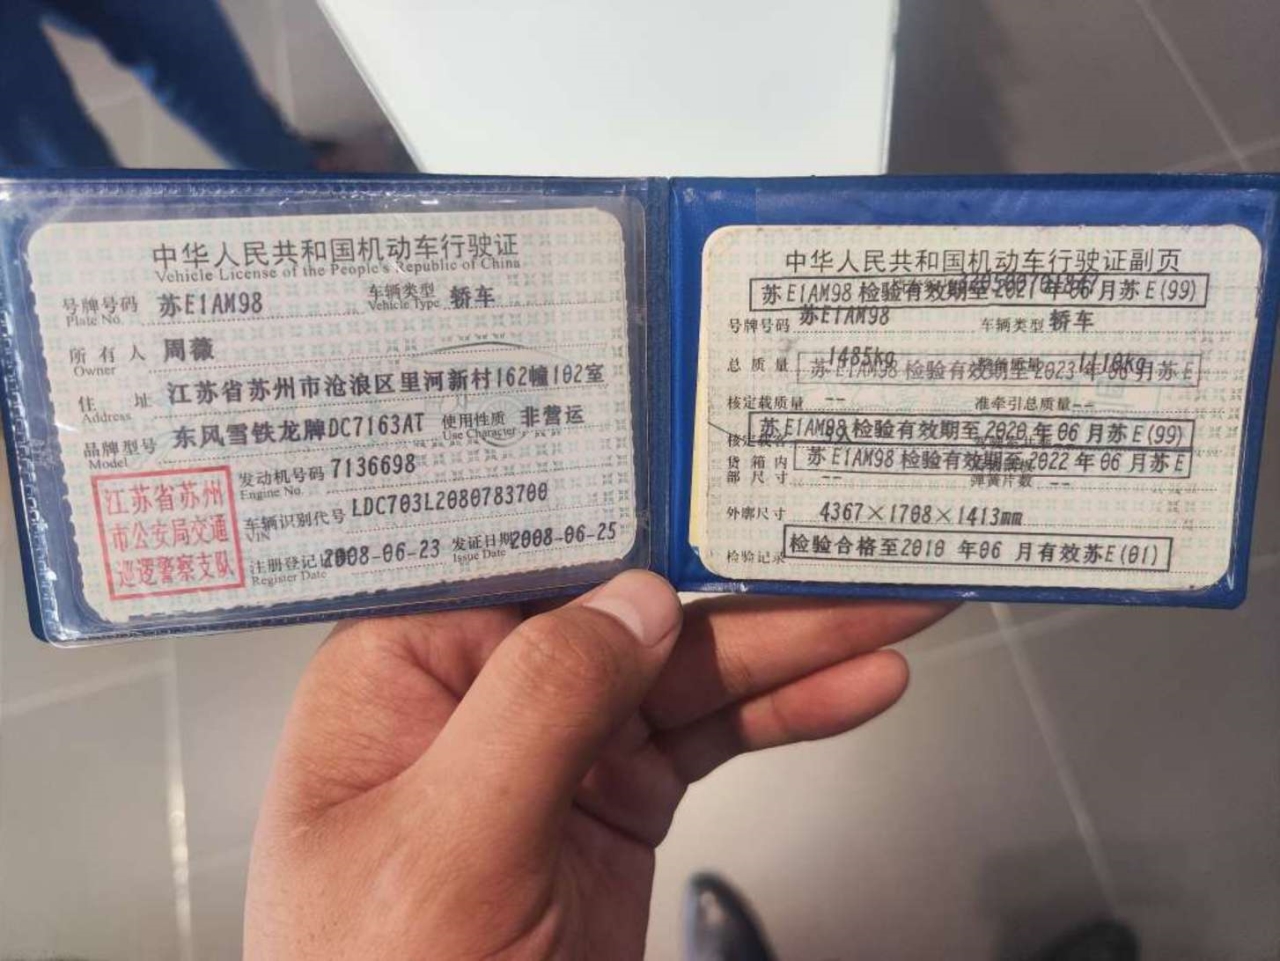 中华人民共和国机动车行驶证
Vehicle License of the People's Republic of China
号牌号码 苏E1AM98 车辆类型 轿车
Plate No. Vehicle Type
所有人 周薇
Owner
住址 江苏省苏州市沧浪区里河新村162幢102室
Address
品牌型号 东风雪铁龙牌DC7163AT 使用性质 非营运
Model Use Character
江苏省苏州
市公安局交通
巡逻警察支队
发动机号码 7136698
Engine No.
车辆识别代号 LDC703L2080783700
VIN
注册登记日期 2008-06-23 发证日期 2008-06-25
Register Date Issue Date
中华人民共和国机动车行驶证副页
苏E1AM98 检验有效期至2021年06月苏E(99)
号牌号码 苏E1AM98 车辆类型 轿车
总质量 1485kg 整备质量 1110kg
苏E1AM98 检验有效期至2023年06月苏E
核定载质量 -- 准牵引总质量 --
苏E1AM98 检验有效期至2020年06月苏E(99)
苏E1AM98 检验有效期至2022年06月苏E
货箱内部尺寸 -- 弹簧片数 --
外廓尺寸 4367×1708×1413mm
检验记录 检验合格至2010年06月有效苏E(01)